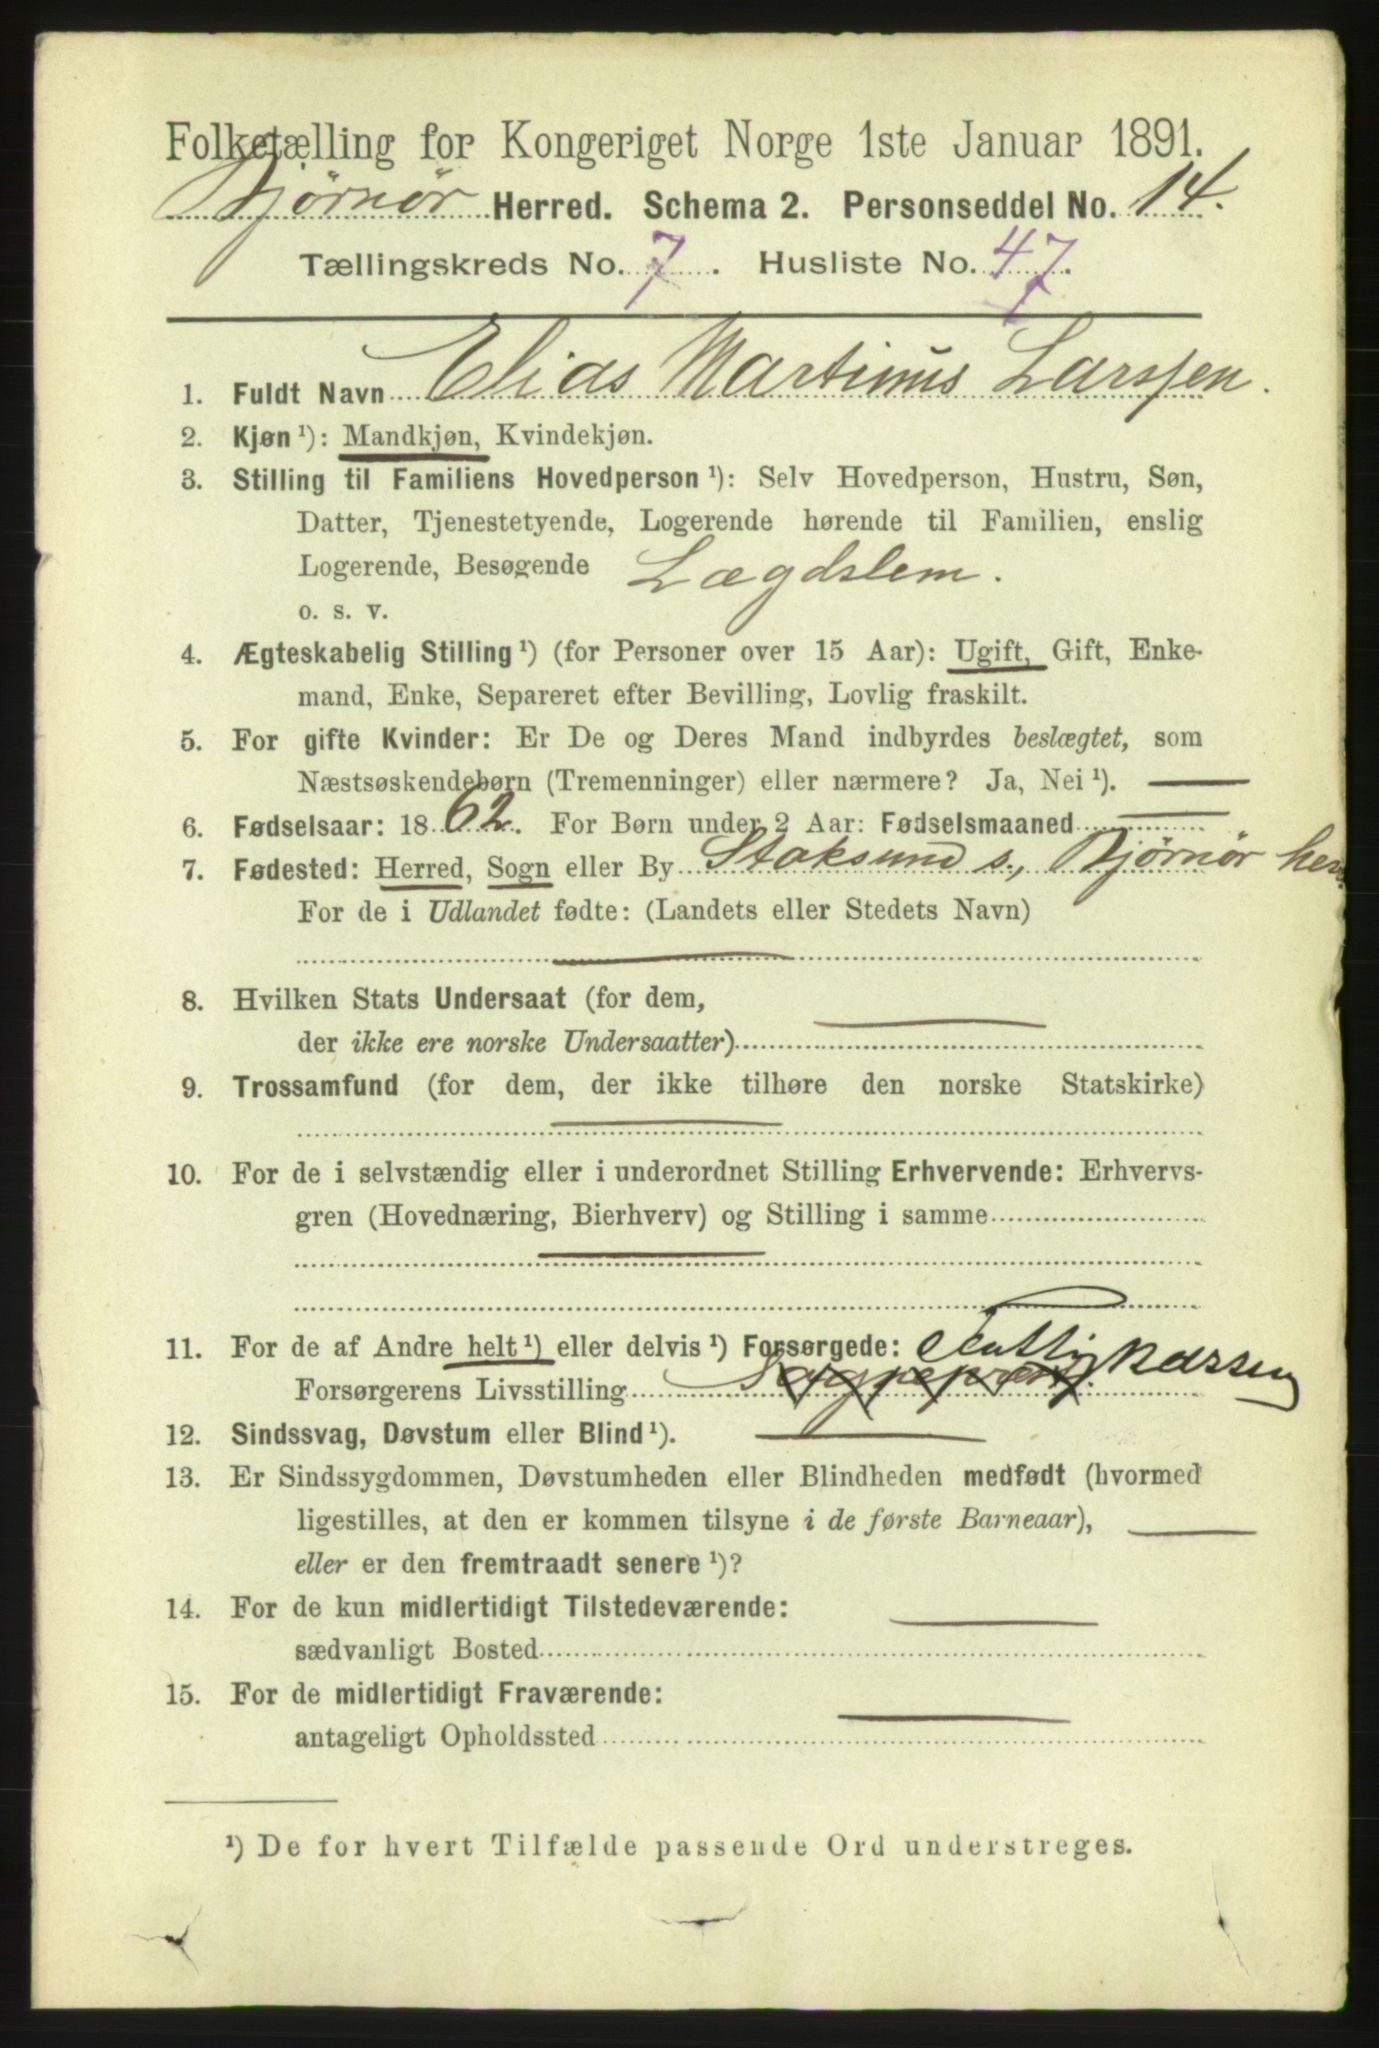 Folketælling for Kongeriget Norge 1ste Januar 1891.
Bjørnør Herred. Schema 2. Personseddel No. 14.
Tællingskreds No. 7. Husliste No. 47.
1. Fuldt Navn Elias Martinus Larssen.
2. Kjøn ¹): Mandkjøn, Kvindekjøn.
3. Stilling til Familiens Hovedperson ¹): Selv Hovedperson, Hustru, Søn,
Datter, Tjenestetyende, Logerende hørende til Familien, enslig
Logerende, Besøgende Lægdslem.
o. s. v.
4. Ægteskabelig Stilling ¹) (for Personer over 15 Aar): Ugift, Gift, Enke-
mand, Enke, Separeret efter Bevilling, Lovlig fraskilt.
5. For gifte Kvinder: Er De og Deres Mand indbyrdes beslægtet, som
Næstsøskendebørn (Tremenninger) eller nærmere? Ja, Nei ¹).
6. Fødselsaar: 1862. For Børn under 2 Aar: Fødselsmaaned
7. Fødested: Herred, Sogn eller By Stoksund s., Bjørnør her
For de i Udlandet fødte: (Landets eller Stedets Navn)
8. Hvilken Stats Undersaat (for dem,
der ikke ere norske Undersaatter)
9. Trossamfund (for dem, der ikke tilhøre den norske Statskirke)
10. For de i selvstændig eller i underordnet Stilling Erhvervende: Erhvervs-
gren (Hovednæring, Bierhverv) og Stilling i samme
11. For de af Andre helt ¹) eller delvis ¹) Forsørgede: Fattigkassen
Forsørgerens Livsstilling
12. Sindssvag, Døvstum eller Blind ¹).
13. Er Sindssygdommen, Døvstumheden eller Blindheden medfødt (hvormed
ligestilles, at den er kommen tilsyne i de første Barneaar),
eller er den fremtraadt senere ¹)?
14. For de kun midlertidigt Tilstedeværende:
sædvanligt Bosted
15. For de midlertidigt Fraværende:
antageligt Opholdssted
¹) De for hvert Tilfælde passende Ord understreges.